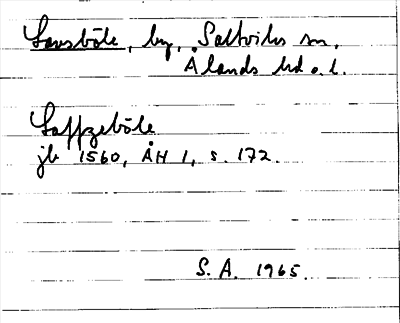 Lavsböle, by, Saltviks sn.
Ålands hd o. l.
Laffzeböle
jb 1560, ÅH 1, s. 172.
S. A. 1965.